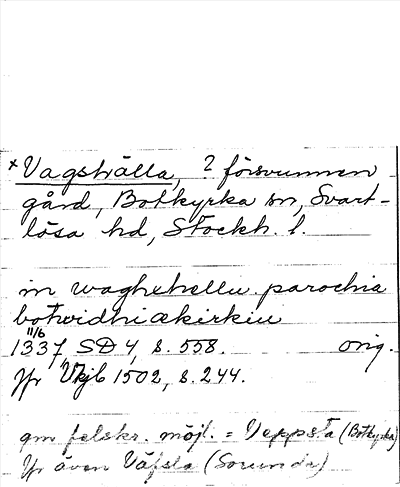 *Vagshälla, ? försvunnen
gård, Botkyrka sn, Svart-
lösa hd, Stockh. l.
in waghxhellu parochia
botwidhiækirkiu
11/6
1337, SD 4, s. 558. orig.
Jfr Vkjb 1502, s. 244.
gm felskr. möjl. = Veppsta (Botkyrka)
Jfr även Väfsla (Sorunda)